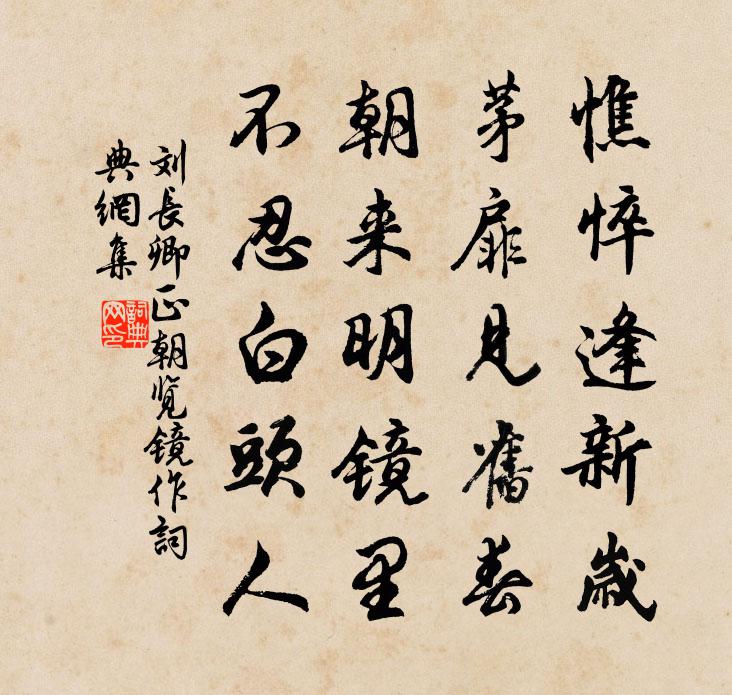 憔悴逢新歳
茅扉見舊春
朝来明镜里
不忍白頭人
刘長卿正朝览镜作詞
典網集
詞典
网印